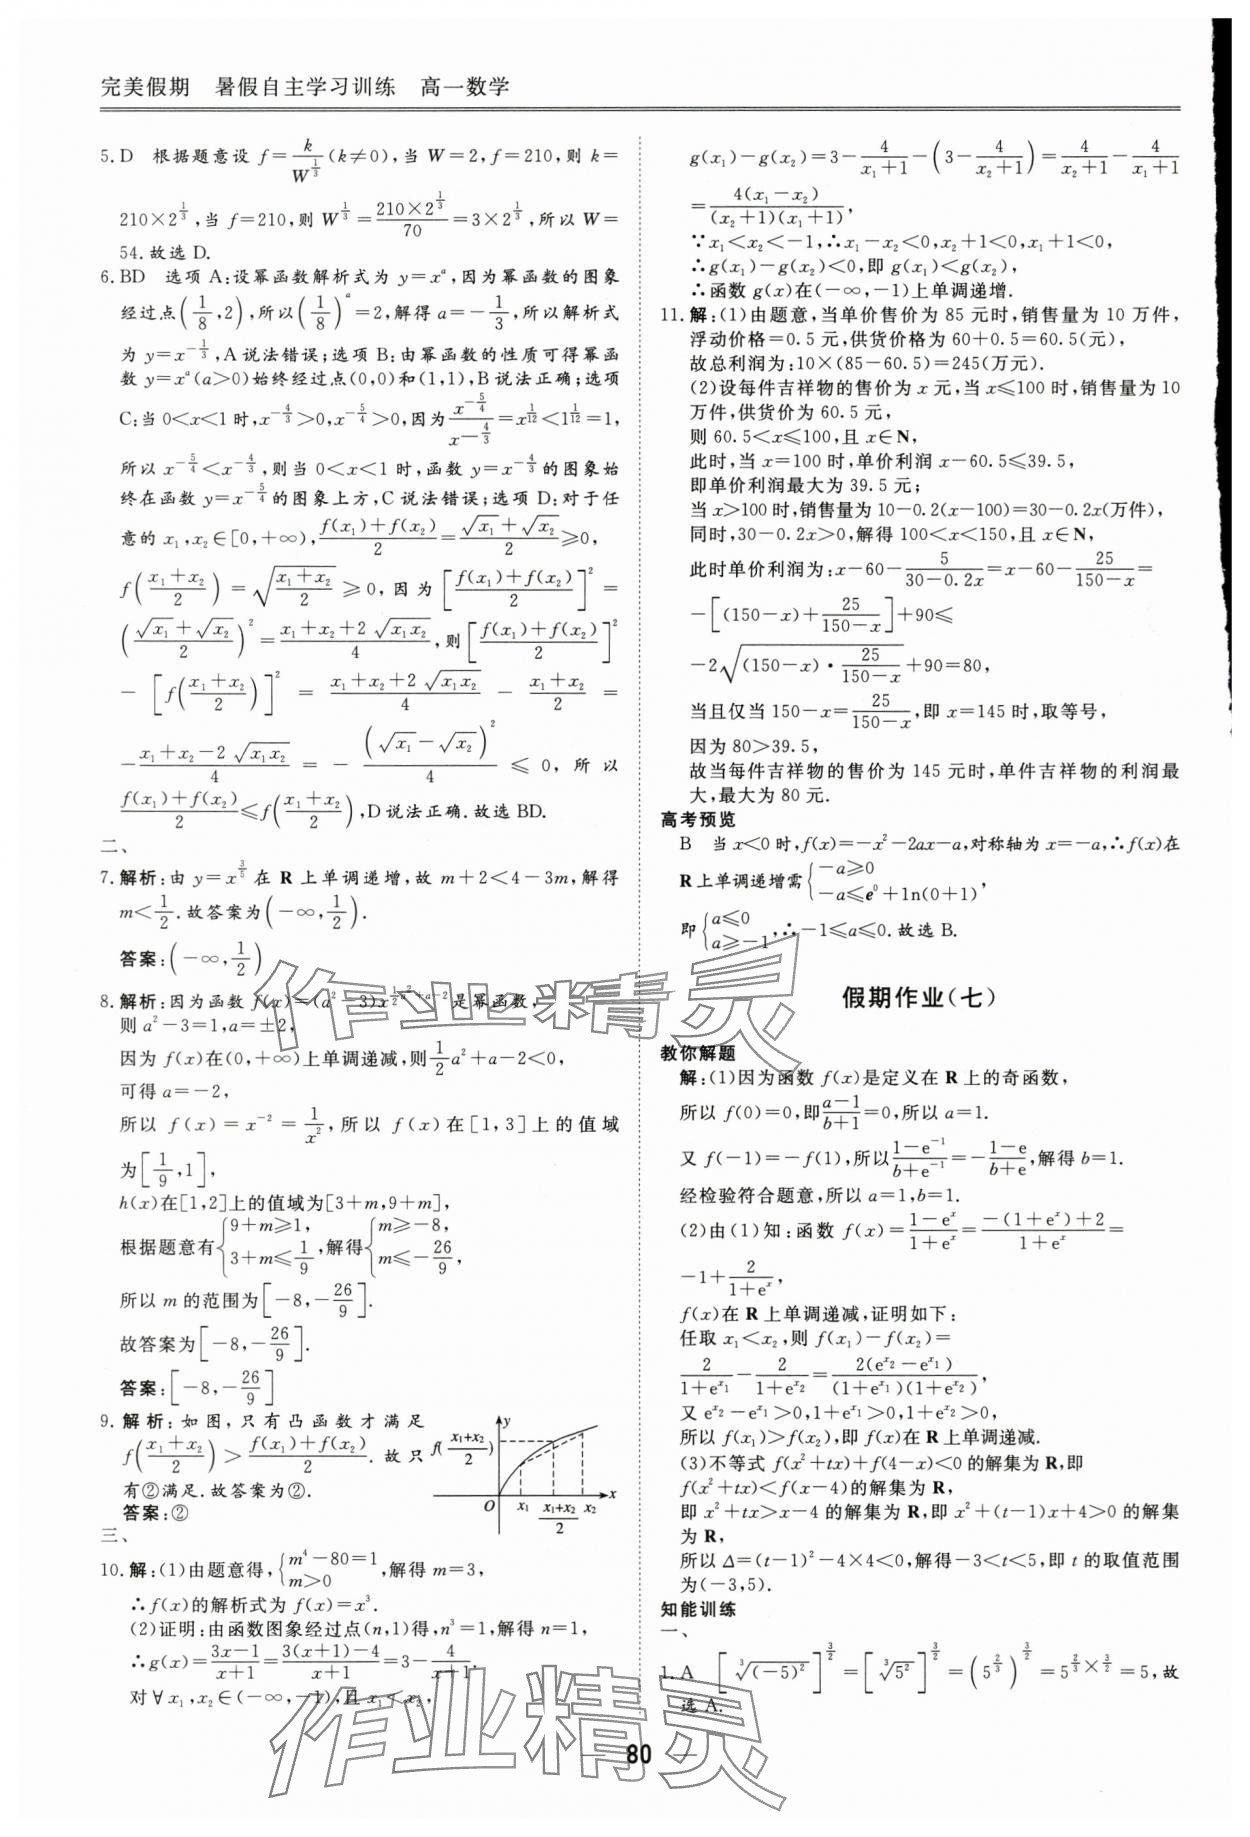 完美假期 暑假自主学习训练 高一数学
5. D 根据题意设 f=k/W^(1/3)(k≠0),当 W=2,f=210,则 k=
210×2^(1/3),当 f=210,则 W^(1/3)=(210×2^(1/3))/70=3×2^(1/3),所以 W=
54.故选 D.
6. BD 选项 A:设幂函数解析式为 y=x^a,因为幂函数的图象
经过点(1/8,2),所以(1/8)^a=2,解得 a=-1/3,所以解析式
为 y=x^(-1/3),A 说法错误;选项 B:由幂函数的性质可得幂函
数 y=x^a(a>0)始终经过点(0,0)和(1,1),B 说法正确;选项
C:当 0<x<1 时,x^(-4/3)>0,x^(-5/4)>0,因为 x^(-5/4)/x^(-4/3)=x^(1/12)<1^(1/12)=1,
所以 x^(-5/4)<x^(-4/3),则当 0<x<1 时,函数 y=x^(-4/3) 的图象始
终在函数 y=x^(-5/4) 的图象上方,C 说法错误;选项 D:对于任
意的 x₁,x₂∈[0,+∞),(f(x₁)+f(x₂))/2=(√x₁+√x₂)/2≥0,
f((x₁+x₂)/2)=√((x₁+x₂)/2)≥0,因为[(f(x₁)+f(x₂))/2]²=
((√x₁+√x₂)/2)²=(x₁+x₂+2√(x₁x₂))/4,则[(f(x₁)+f(x₂))/2]²
-[f((x₁+x₂)/2)]²=(x₁+x₂+2√(x₁x₂))/4-(x₁+x₂)/2=
-(x₁+x₂-2√(x₁x₂))/4=-(√x₁-√x₂)²/4≤0,所以
(f(x₁)+f(x₂))/2≤f((x₁+x₂)/2),D 说法正确.故选 BD.
二、
7. 解析:由 y=x^(3/5) 在 R 上单调递增,故 m+2<4-3m,解得
m<1/2.故答案为(-∞,1/2).
答案:(-∞,1/2)
8. 解析:因为函数 f(x)=(a²-3)x^(1/2 a²+a-2) 是幂函数,
则 a²-3=1,a=±2,
因为 f(x)在(0,+∞)上单调递减,则 1/2 a²+a-2<0,
可得 a=-2,
所以 f(x)=x^(-2)=1/x²,所以 f(x)在[1,3]上的值域
为[1/9,1],
h(x)在[1,2]上的值域为[3+m,9+m],
根据题意有{9+m≥1, 3+m≤1/9,解得{m≥-8, m≤-26/9,
所以 m 的范围为[-8,-26/9].
故答案为[-8,-26/9].
答案:[-8,-26/9]
9. 解析:如图,只有凸函数才满足
f((x₁+x₂)/2)>(f(x₁)+f(x₂))/2.故只
有②满足.故答案为②.
答案:②
y
f((x₁+x₂)/2)
O x₁ (x₁+x₂)/2 x₂ x
三、
10. 解:(1)由题意得,{m⁴-80=1 m>0,解得 m=3,
∴f(x)的解析式为 f(x)=x³.
(2)证明:由函数图象经过点(n,1)得,n³=1,解得 n=1,
∴g(x)=(3x-1)/(x+1)=(3(x+1)-4)/(x+1)=3-4/(x+1).
对∀x₁,x₂∈(-∞,-1),且 x₁<x₂,
g(x₁)-g(x₂)=3-4/(x₁+1)-(3-4/(x₂+1))=4/(x₂+1)-4/(x₁+1)
=4(x₁-x₂)/((x₂+1)(x₁+1)),
∵x₁<x₂<-1,∴x₁-x₂<0,x₂+1<0,x₁+1<0,
∴g(x₁)-g(x₂)<0,即 g(x₁)<g(x₂),
∴函数 g(x)在(-∞,-1)上单调递增.
11. 解:(1)由题意,当单价售价为 85 元时,销售量为 10 万件,
浮动价格=0.5 元,供货价格为 60+0.5=60.5(元),
故总利润为:10×(85-60.5)=245(万元).
(2)设每件吉祥物的售价为 x 元,当 x≤100 时,销售量为 10
万件,供货价为 60.5 元,
则 60.5<x≤100,且 x∈N,
此时,当 x=100 时,单价利润 x-60.5≤39.5,
即单价利润最大为 39.5 元;
当 x>100 时,销售量为 10-0.2(x-100)=30-0.2x(万件),
同时,30-0.2x>0,解得 100<x<150,且 x∈N,
此时单价利润为:x-60-5/(30-0.2x)=x-60-25/(150-x)=
-[(150-x)+25/(150-x)]+90≤
-2√((150-x)·25/(150-x))+90=80,
当且仅当 150-x=25/(150-x),即 x=145 时,取等号,
因为 80>39.5,
故当每件吉祥物的售价为 145 元时,单件吉祥物的利润最
大,最大为 80 元.
高考预览
B 当 x<0 时,f(x)=-x²-2ax-a,对称轴为 x=-a,∴f(x)在
R 上单调递增需{-a≥0 -a≤e⁰+ln(0+1),
即{a≤0 a≥-1,∴-1≤a≤0.故选 B.
假期作业(七)
教你解题
解:(1)因为函数 f(x)是定义在 R 上的奇函数,
所以 f(0)=0,即(a-1)/(b+1)=0,所以 a=1.
又 f(-1)=-f(1),所以(1-e⁻¹)/(b+e⁻¹)=-(1-e)/(b+e),解得 b=1.
经检验符合题意,所以 a=1,b=1.
(2)由(1)知:函数 f(x)=(1-eˣ)/(1+eˣ)=(-(1+eˣ)+2)/(1+eˣ)=
-1+2/(1+eˣ),
f(x)在 R 上单调递减,证明如下:
任取 x₁<x₂,则 f(x₁)-f(x₂)=
2/(1+e^x₁)-2/(1+e^x₂)=2(e^x₂-e^x₁)/((1+e^x₁)(1+e^x₂)),
又 e^x₂-e^x₁>0,1+e^x₁>0,1+e^x₂>0,
所以 f(x₁)>f(x₂),即 f(x)在 R 上单调递减.
(3)不等式 f(x²+tx)+f(4-x)<0 的解集为 R,即
f(x²+tx)<f(x-4)的解集为 R,
即 x²+tx>x-4 的解集为 R,即 x²+(t-1)x+4>0 的解集
为 R,
所以 Δ=(t-1)²-4×4<0,解得-3<t<5,即 t 的取值范围
为(-3,5).
知能训练
一、
1. A [∛((-5)²)]^(3/2)=[∛(5²)]^(3/2)=(5^(2/3))^(3/2)=5^(2/3×3/2)=5,故
选 A.
80
作业精灵
作业精灵